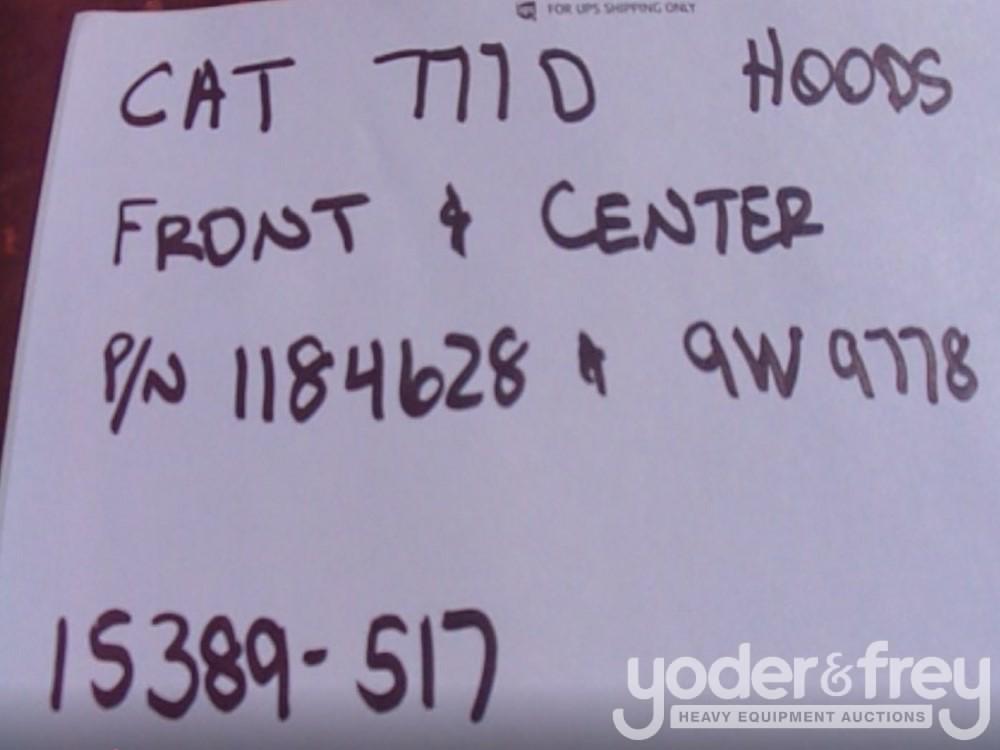 FOR UPS SHIPPING ONLY
CAT 777D HOODS
FRONT & CENTER
P/N 1184628 & 9W9778
15389-517
yoder&frey
HEAVY EQUIPMENT AUCTIONS